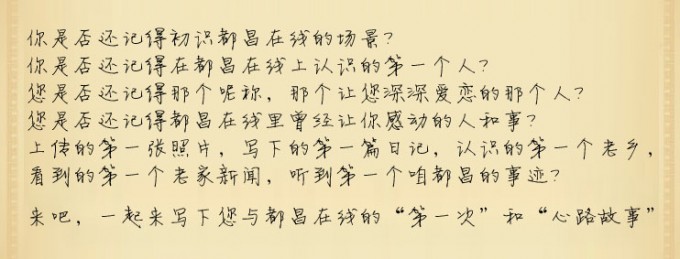 你是否还记得初识都昌在线的场景?
你是否还记得在都昌在线上认识的第一个人?
您是否还记得那个昵称，那个让您深深爱恋的那个人?
您是否还记得都昌在线里曾经让你感动的人和事?
上传的第一张照片，写下的第一篇日记，认识的第一个老乡，
看到的第一个老家新闻，听到第一个咱都昌的事迹?
来吧，一起来写下您与都昌在线的“第一次”和“心路故事”